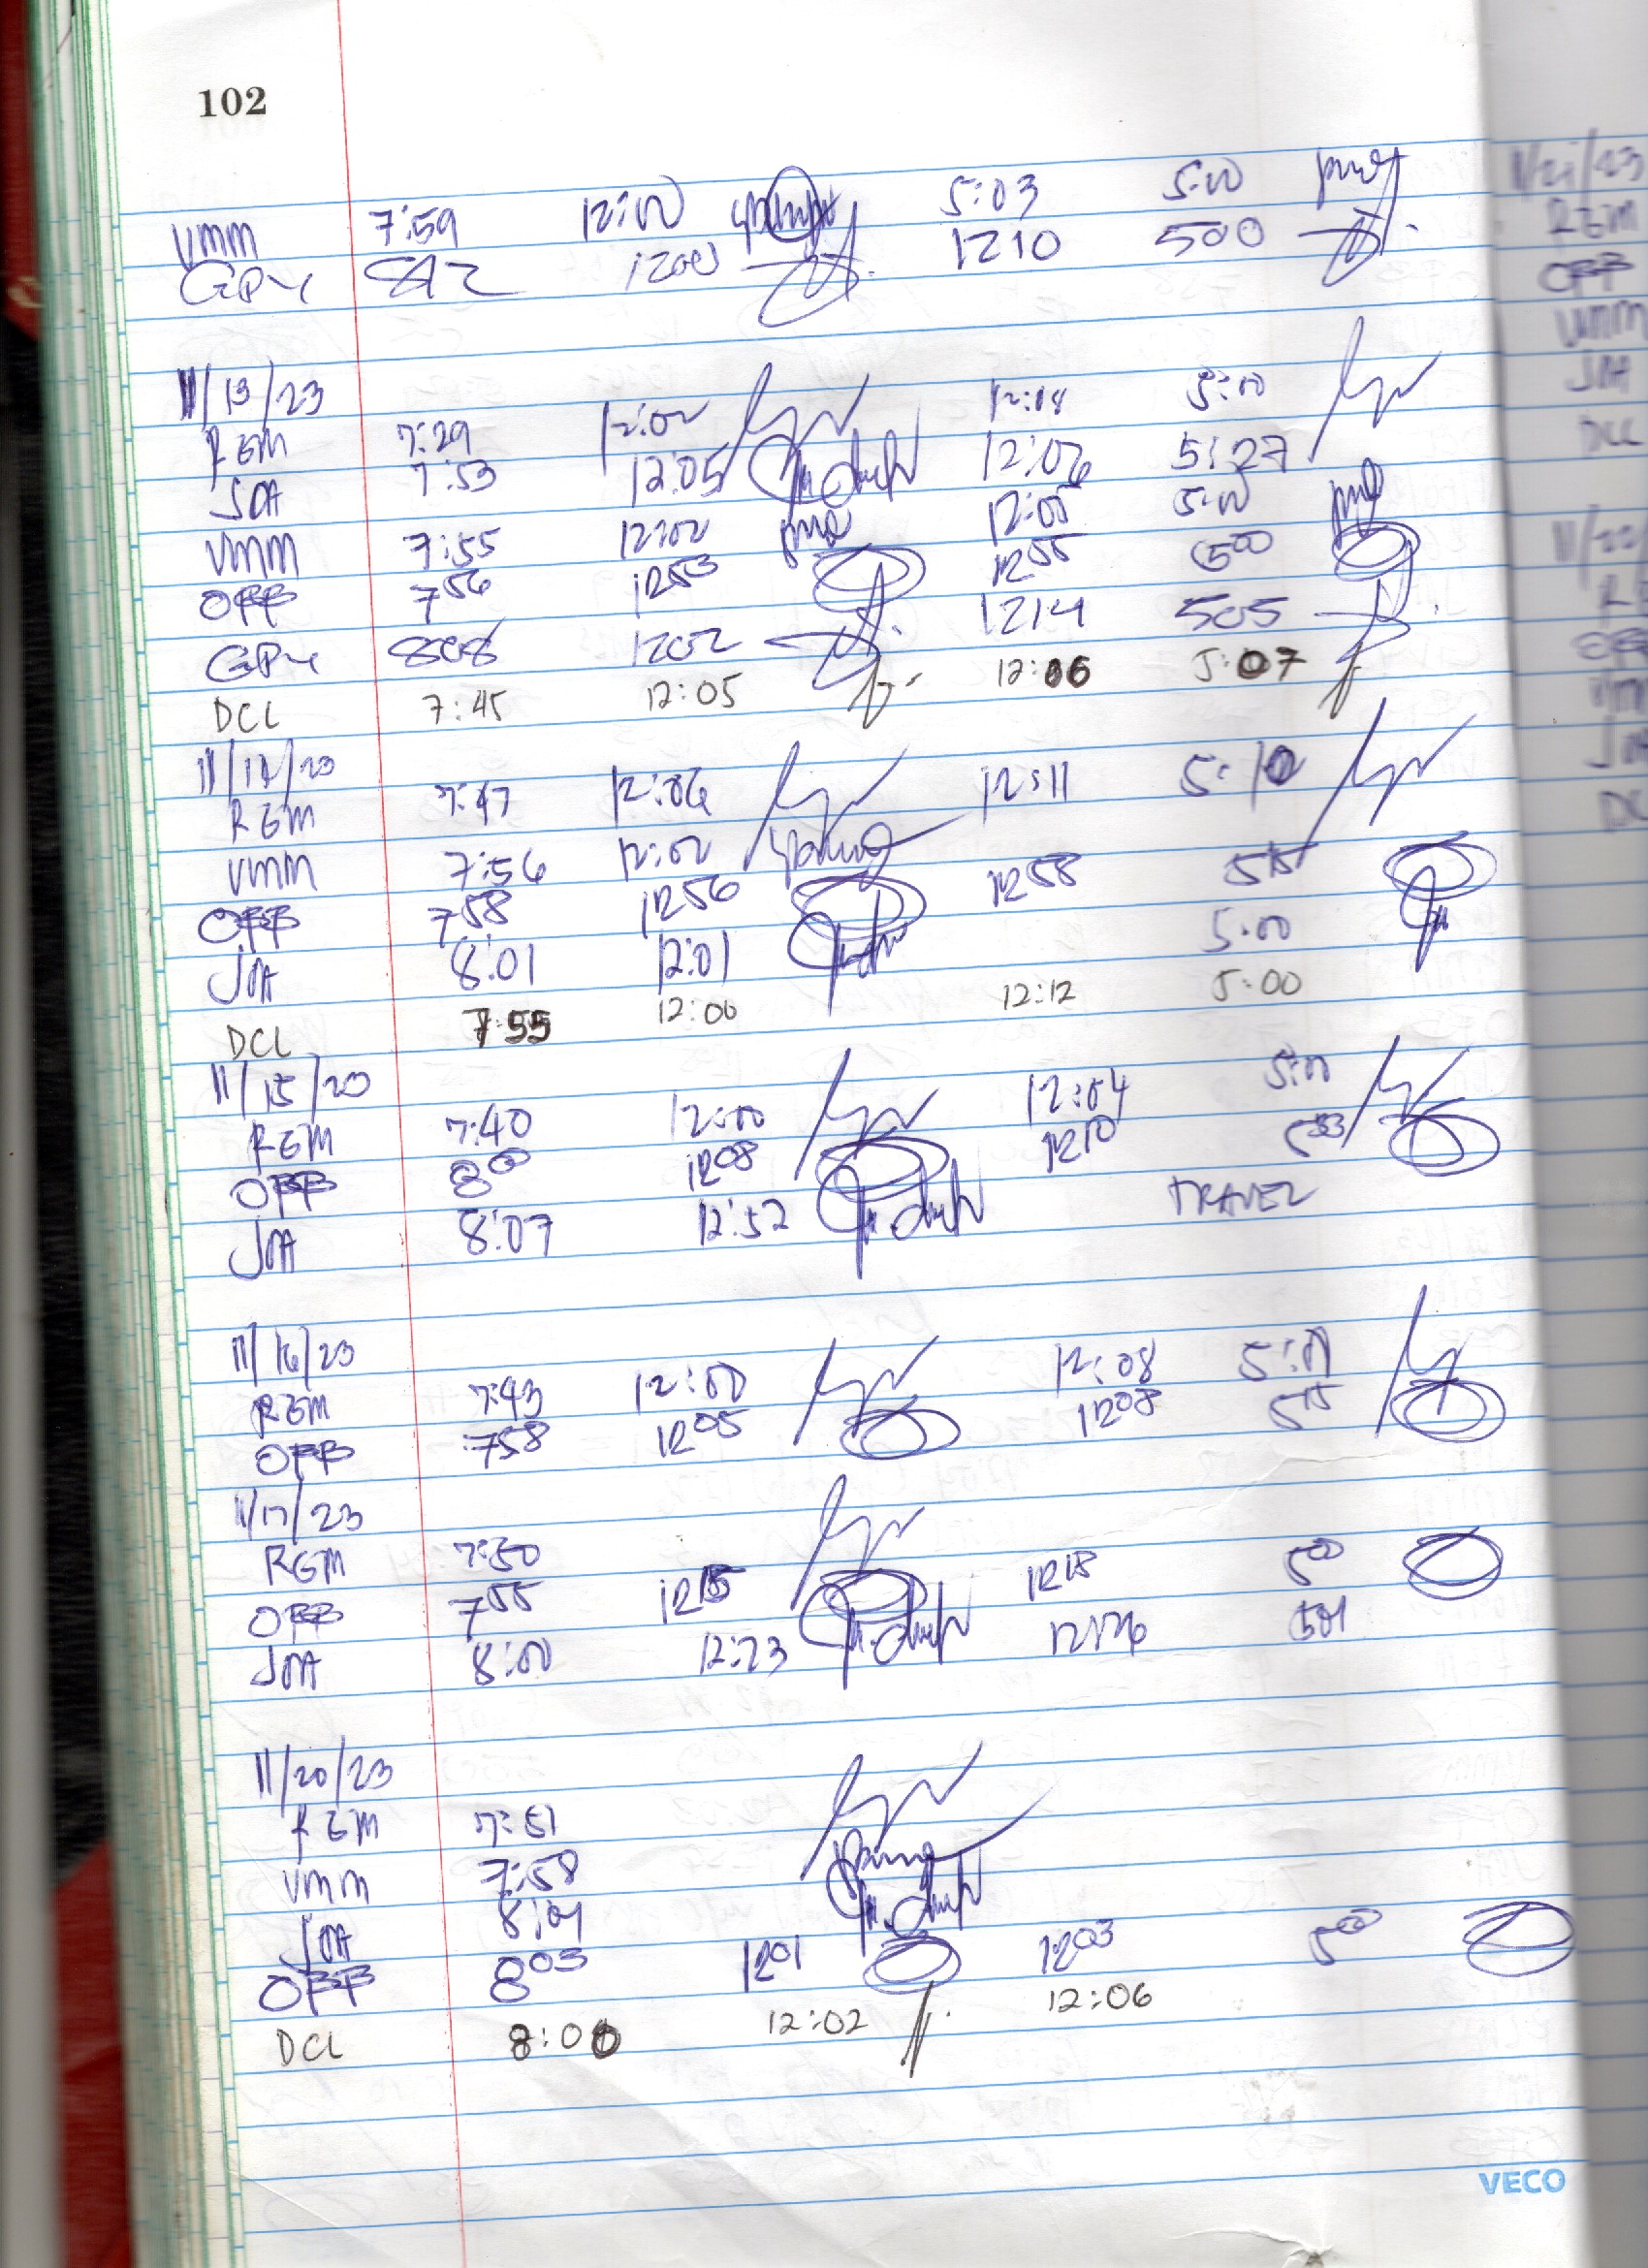 102
VMM 7:59 12:00 5:03 5:00
GPY 812 1200 1210 500
11/13/23
RGM 7:29 12:02 12:08 5:00
JOA 7:53 12:05 12:06 5:27
VMM 7:55 12:02 12:05 5:00
OFB 7 56 12 53 12 55 5 00
GPY 808 1202 1214 505
DCL 7:45 12:05 12:06 5:07
11/14/20
RGM 7:47 12:06 12:11 5:10
VMM 7:56 12:02
OFB 7 58 12 56 12 58 5 15
JOA 8:01 12:01 5:00
DCL 7:55 12:06 12:12 5:00
11/15/20
RGM 7:40 12:00 12:04 5:00
OFB 8 00 12 08 12 10 5 33
JOA 8:07 12:52 TRAVEL
11/16/23
RGM 7:43 12:00 12:08 5:01
OFB 758 12 05 12 08 5 15
11/17/23
RGM 7:50
OFB 7 55 12 15 12 18 5 00
JOA 8:00 12:23 12:26 501
11/20/23
RGM 7:51
VMM 7:58
JOA 8:01
OFB 8 03 12 01 12 03 5 00
DCL 8:00 12:02 12:06
VECO
11/21/23
RGM
OFB
VMM
JOA
DCL
11/22/